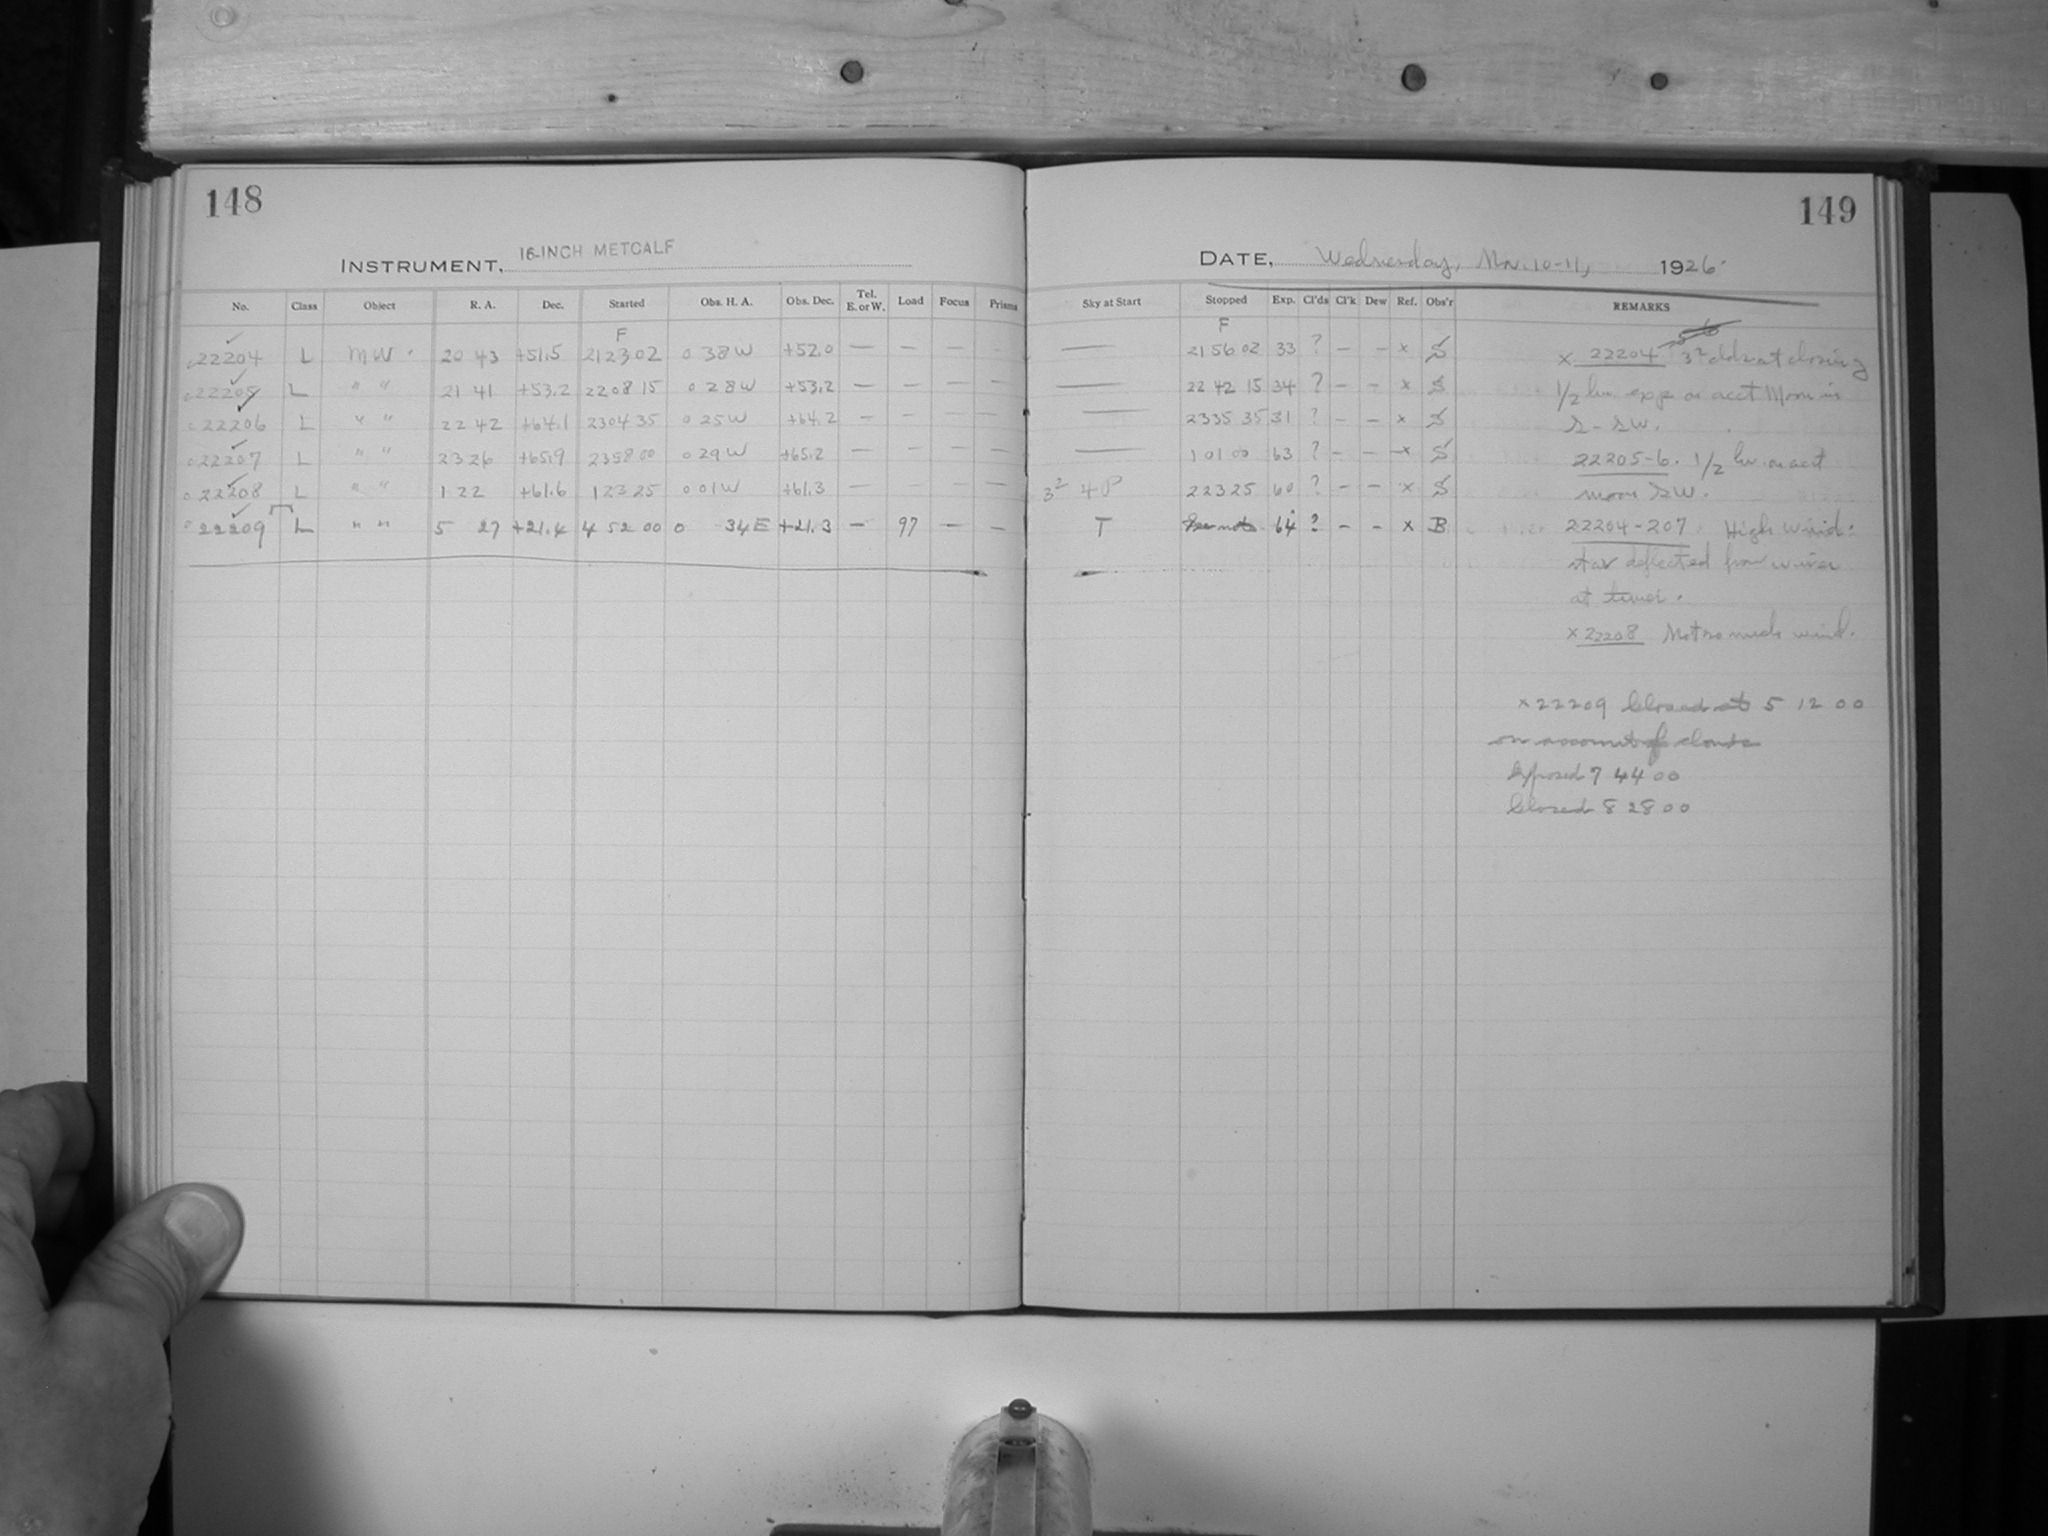 148
INSTRUMENT, 16-INCH METCALF
No. Class Object R. A. Dec. Started Obs. H. A. Obs. Dec. Tel. E. or W. Load Focus Prisms
F
22204 L MW. 20 43 +51.5 21 23 02 0 38 W +52.0 — — — —
22205 L " " 21 41 +53.2 22 08 15 0 28 W +53.2 — — — —
22206 L " " 22 42 +64.1 23 04 35 0 25 W +64.2 — — — —
22207 L " " 23 26 +65.9 23 58 00 0 29 W +65.2 — — — —
22208 L " " 1 22 +61.6 1 23 25 0 01 W +61.3 — — — —
22209 L " " 5 27 +21.4 4 52 00 0 34 E +21.3 — 97 — —
149
DATE, Wednesday, Nov. 10-11, 1926.
Sky at Start Stopped Exp. Cl'ds Cl'k Dew Ref. Obs'r REMARKS
F
— 21 56 02 33 ? — — x S
— 22 42 15 34 ? — — x S
— 23 35 35 31 ? — — x S
— 1 01 00 63 ? — — x S
3² 4P 2 23 25 60 ? — — x S
T See note 64 ? — — x B
x 22204 3² clds at closing
1/2 hr. exp on acct Moon in
S - SW.
22205-6. 1/2 hr. on acct
moon SW.
22204-207 High wind:
star deflected from wires
at times.
x 22208 Not so much wind.
x 22209 Closed at 5 12 00
on account of clouds
Exposed 7 44 00
Closed 8 28 00